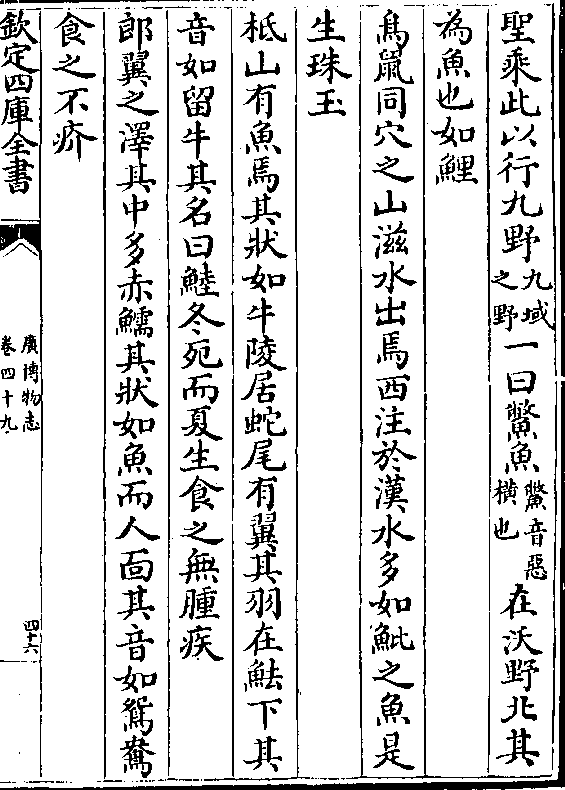 聖乘此以行九野九域之野一曰鱉魚鱉音惡橫也在沃野北其
為魚也如鯉
鳥鼠同穴之山滋水出焉西注於漢水多如魮之魚是
生珠玉
柢山有魚焉其狀如牛陵居蛇尾有翼其羽在魼下其
音如留牛其名曰鯥冬死而夏生食之無腫疾
郎翼之澤其中多赤鱬其狀如魚而人面其音如鴛鴦
食之不疥
欽定四庫全書
廣博物志
卷四十九
四十六